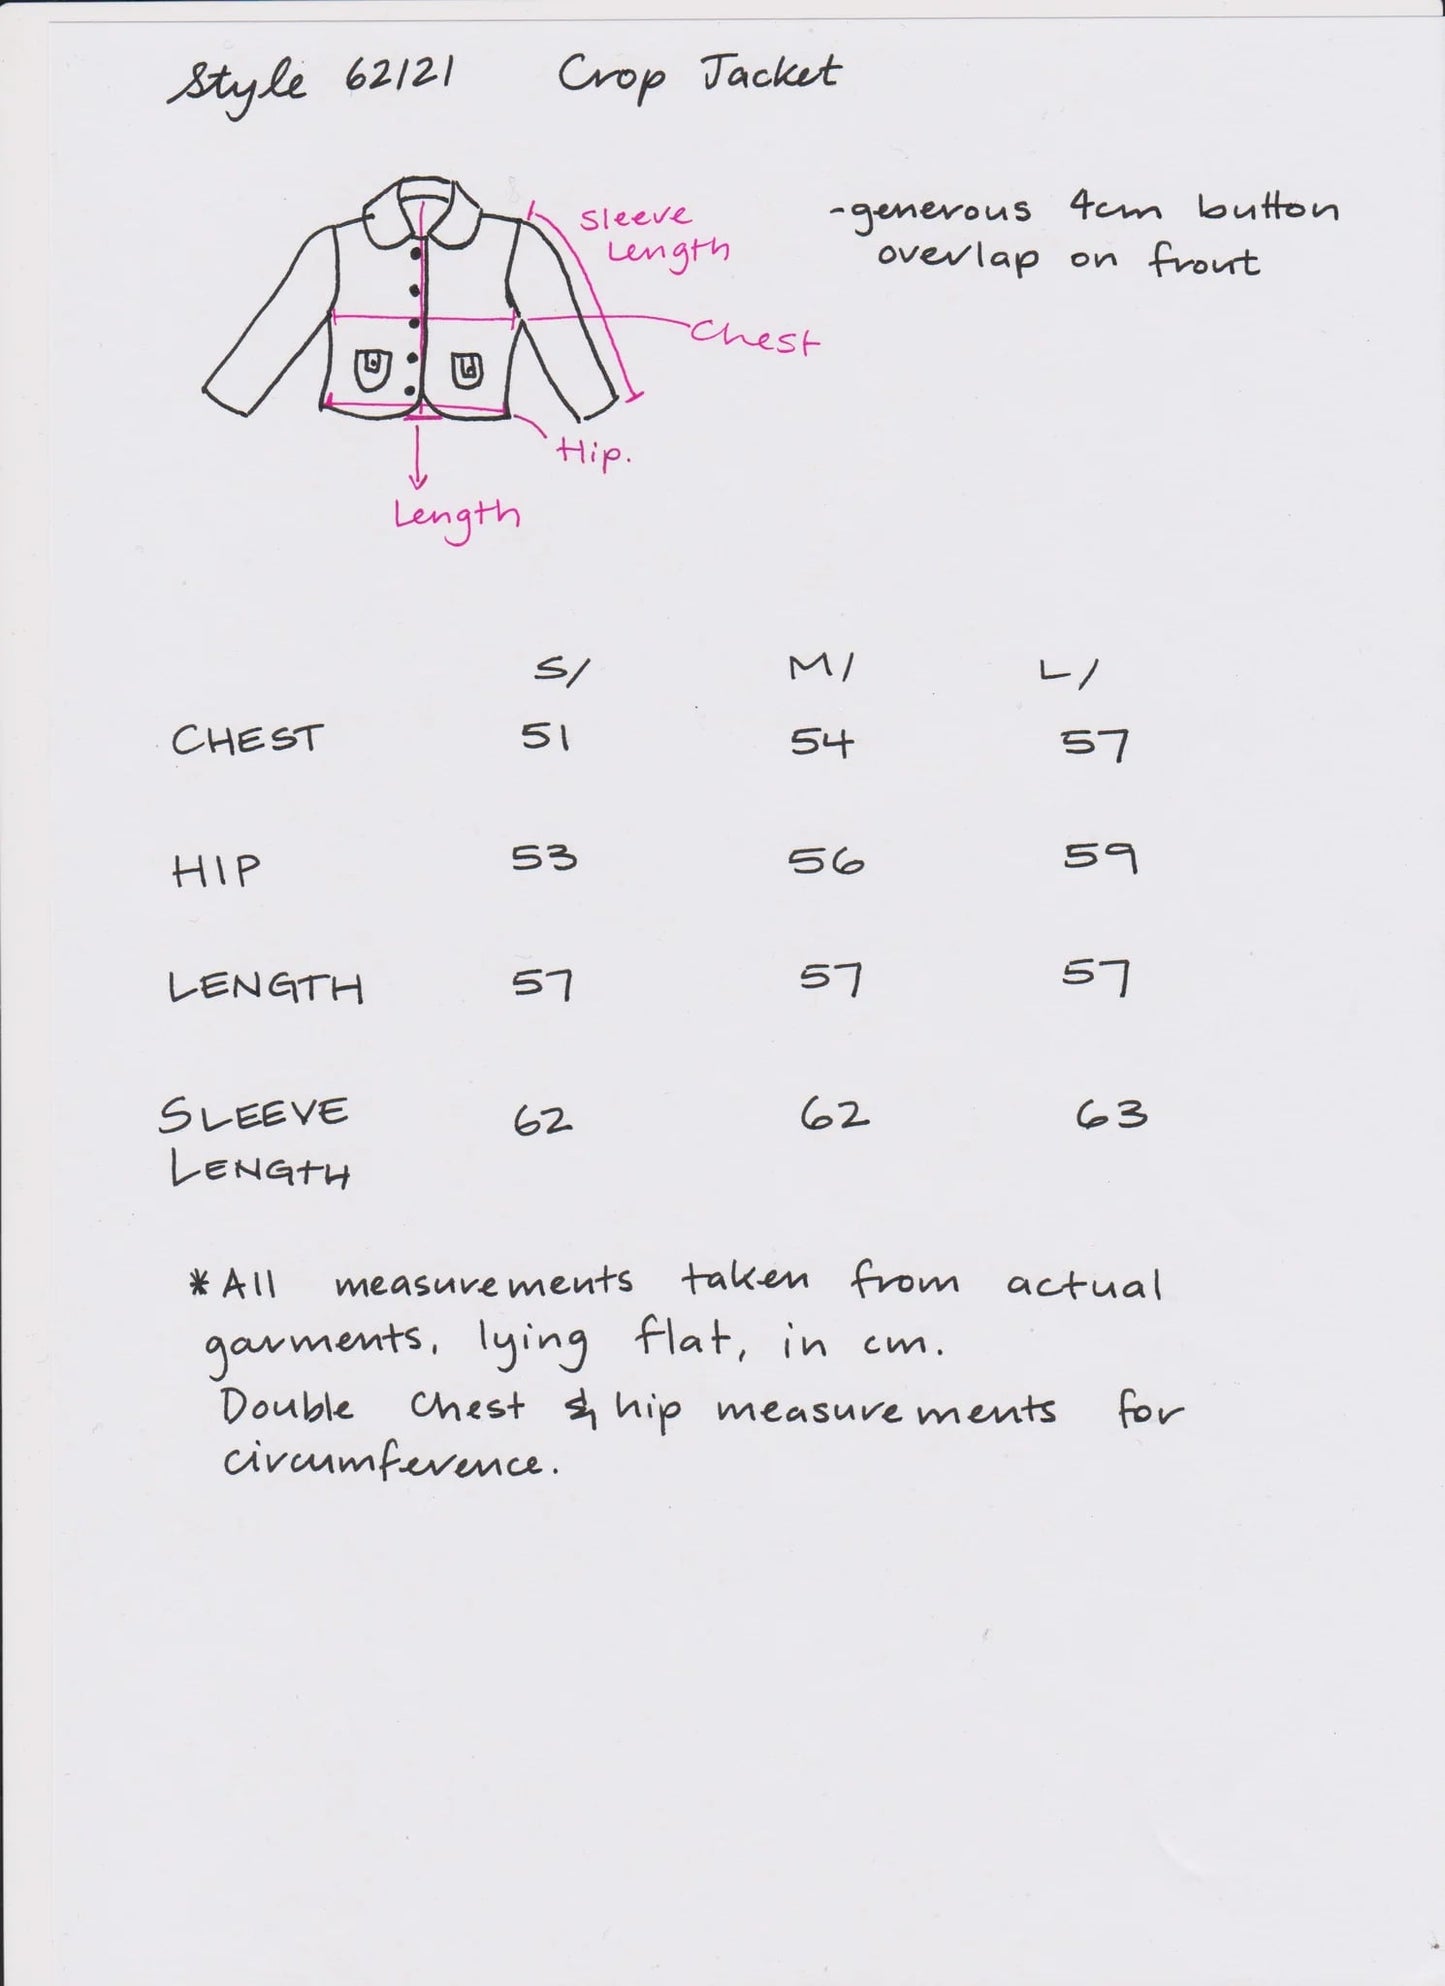 Style 62121 Crop Jacket
Sleeve
Length
-generous 4cm button
overlap on front
Chest
Hip.
Length
S/ M/ L/
CHEST 51 54 57
HIP 53 56 59
LENGTH 57 57 57
SLEEVE 62 62 63
LENGTH
*All measurements taken from actual
garments, lying flat, in cm.
Double chest & hip measurements for
circumference.